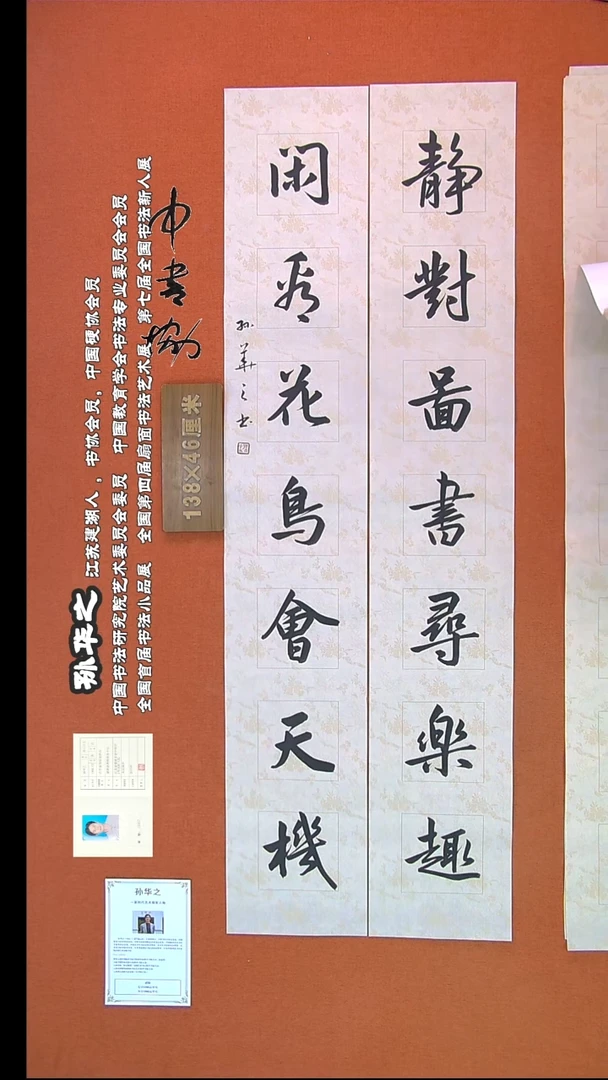 静對畵書尋樂趣
闲看花鳥會天機
孙華之书
138×46厘米
中书协
孙华之
江苏建湖人，书协会员，中国硬协会员
中国书法研究院艺术委员会委员 中国教育学会书法专业委员会会员
全国首届书法小品展 全国第四届扇面书法艺术展 第七届全国书法新人展
孙华之